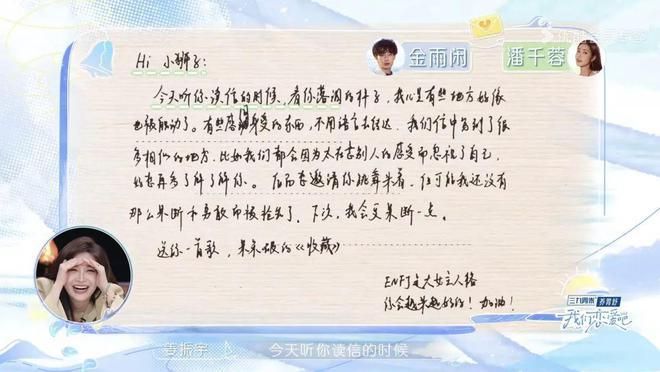 金雨闲
潘千蓉
Hi 小狮子:
今天听你读信的时候、看你落泪的样子，我心里有些地方好像
也被触动了。有些感同身受的东西，不用语言去表达。我们信中写到了很
多相似的地方，比如我们都会因为太在意别人的感受而忽视了自己，
好想再多了解了解你。后面要邀请你跳舞来着，但可能我还没有
那么果断和勇敢而被抢先了。下次，我会更果断一点。
送你一首歌，果味VC的《收藏》
ENFJ是大女主人格
你会越来越好的！加油！
三九胃泰 养胃舒
我们恋爱吧
姜振宇
今天听你读信的时候